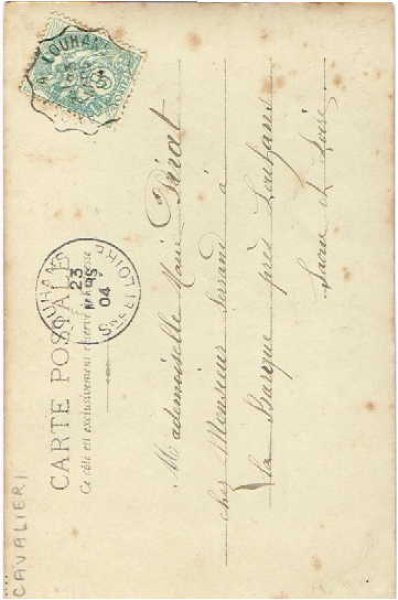 CARTE POSTALE
Ce côté est exclusivement réservé à l'adresse
LOUHANS
23
MARS
04
SNE ET LOIRE
A LOUHANS
Mademoiselle Marie
chez Monsieur Serrand à
la Barque près Louhans
Saône et Loire
CAVALIERI